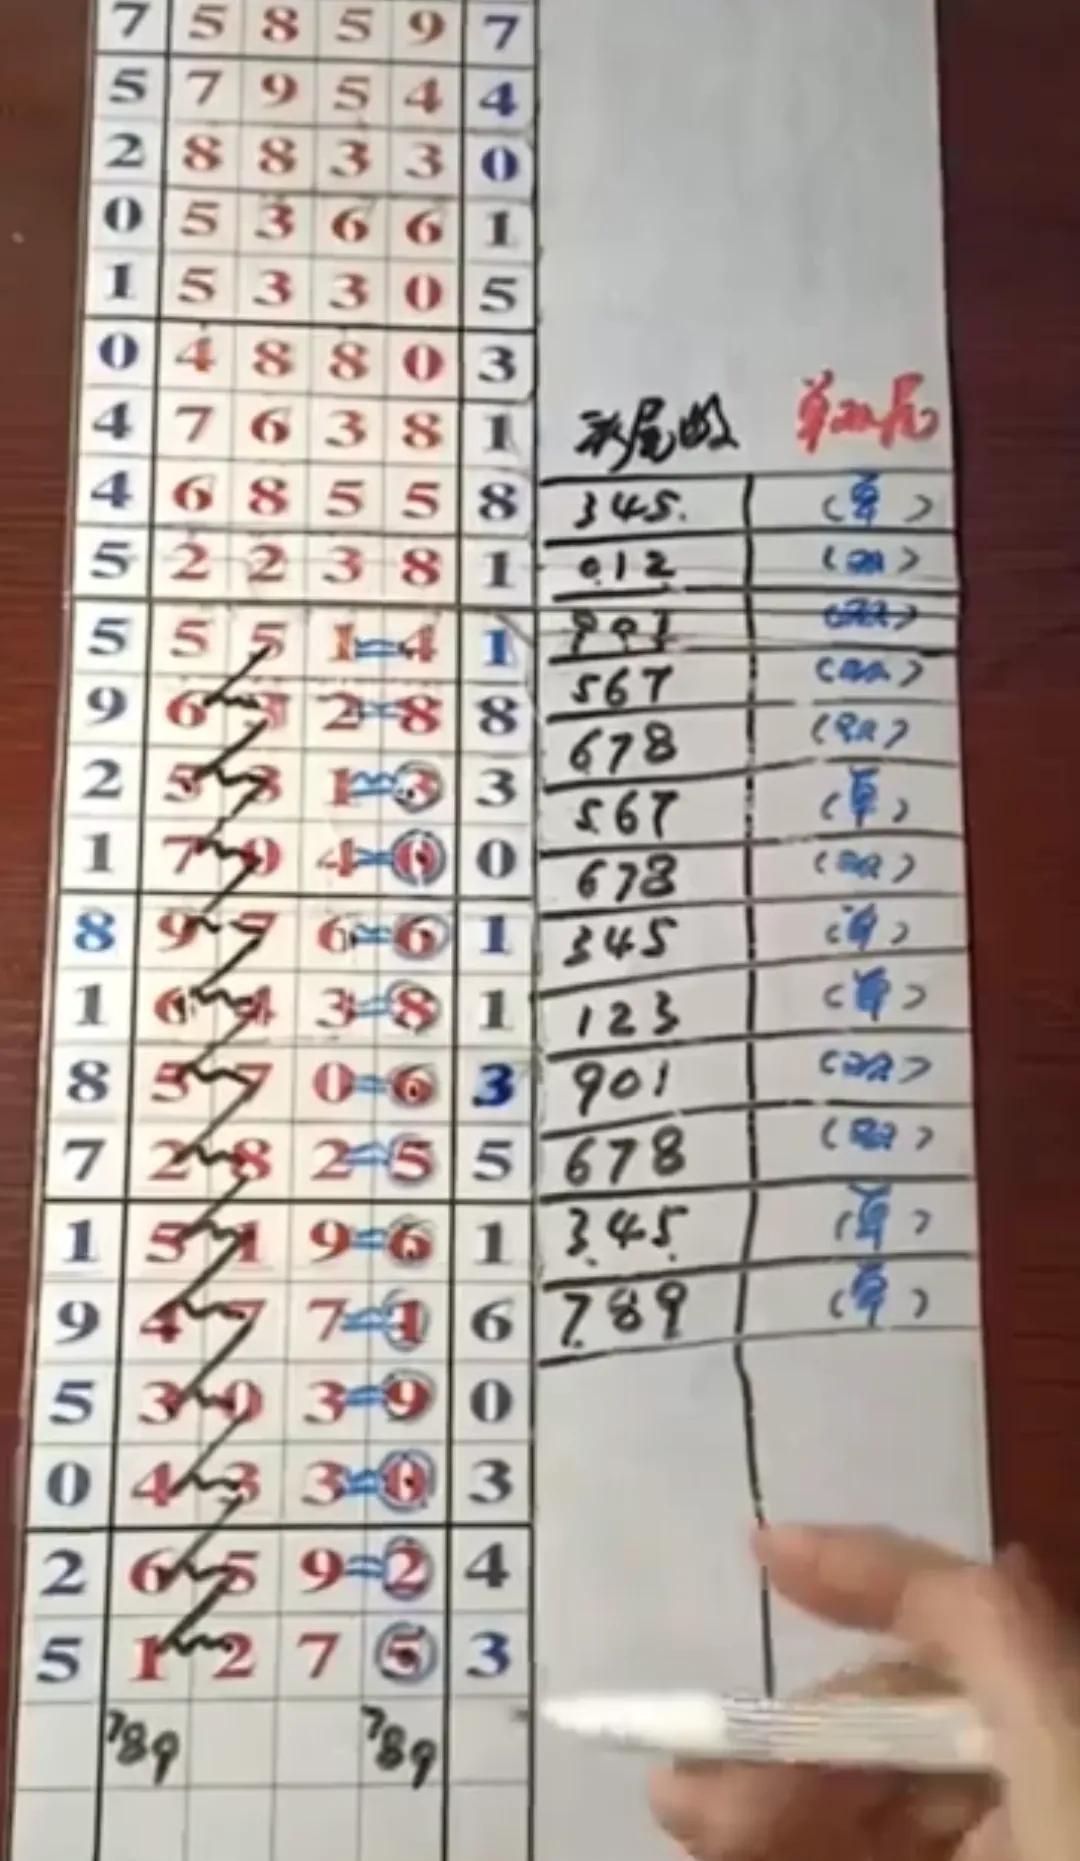 7 5 8 5 9 7
5 7 9 5 4 4
2 8 8 3 3 0
0 5 3 6 6 1
1 5 3 3 0 5
0 4 8 8 0 3
4 7 6 3 8 1 求尾数 单双尾
4 6 8 5 5 8 345. (单)
5 2 2 3 8 1 012 (双)
5 5 5 1=4 1 901 (双)
9 6 3 2=8 8 567 (双)
2 5 3 1=3 3 678 (双)
1 7 9 4=0 0 567 (单)
8 9 7 6=6 1 678 (双)
1 6 4 3=8 1 345 (单)
8 5 7 0=6 3 123 (单)
7 2 8 2=5 5 901 (双)
1 5 1 9=6 1 678 (双)
9 4 7 7=1 6 345 (单)
5 3 0 3=9 0 789 (单)
0 4 3 3=0 3
2 6 5 9=2 4
5 1 2 7 5 3
789 789